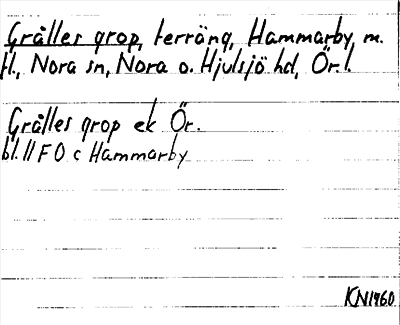 Grålles grop, terräng, Hammarby, m.
fl., Nora sn, Nora o. Hjulsjö hd, Ör. l.
Grålles grop ek Ör.
bl. 11 F O c Hammarby
KN1960